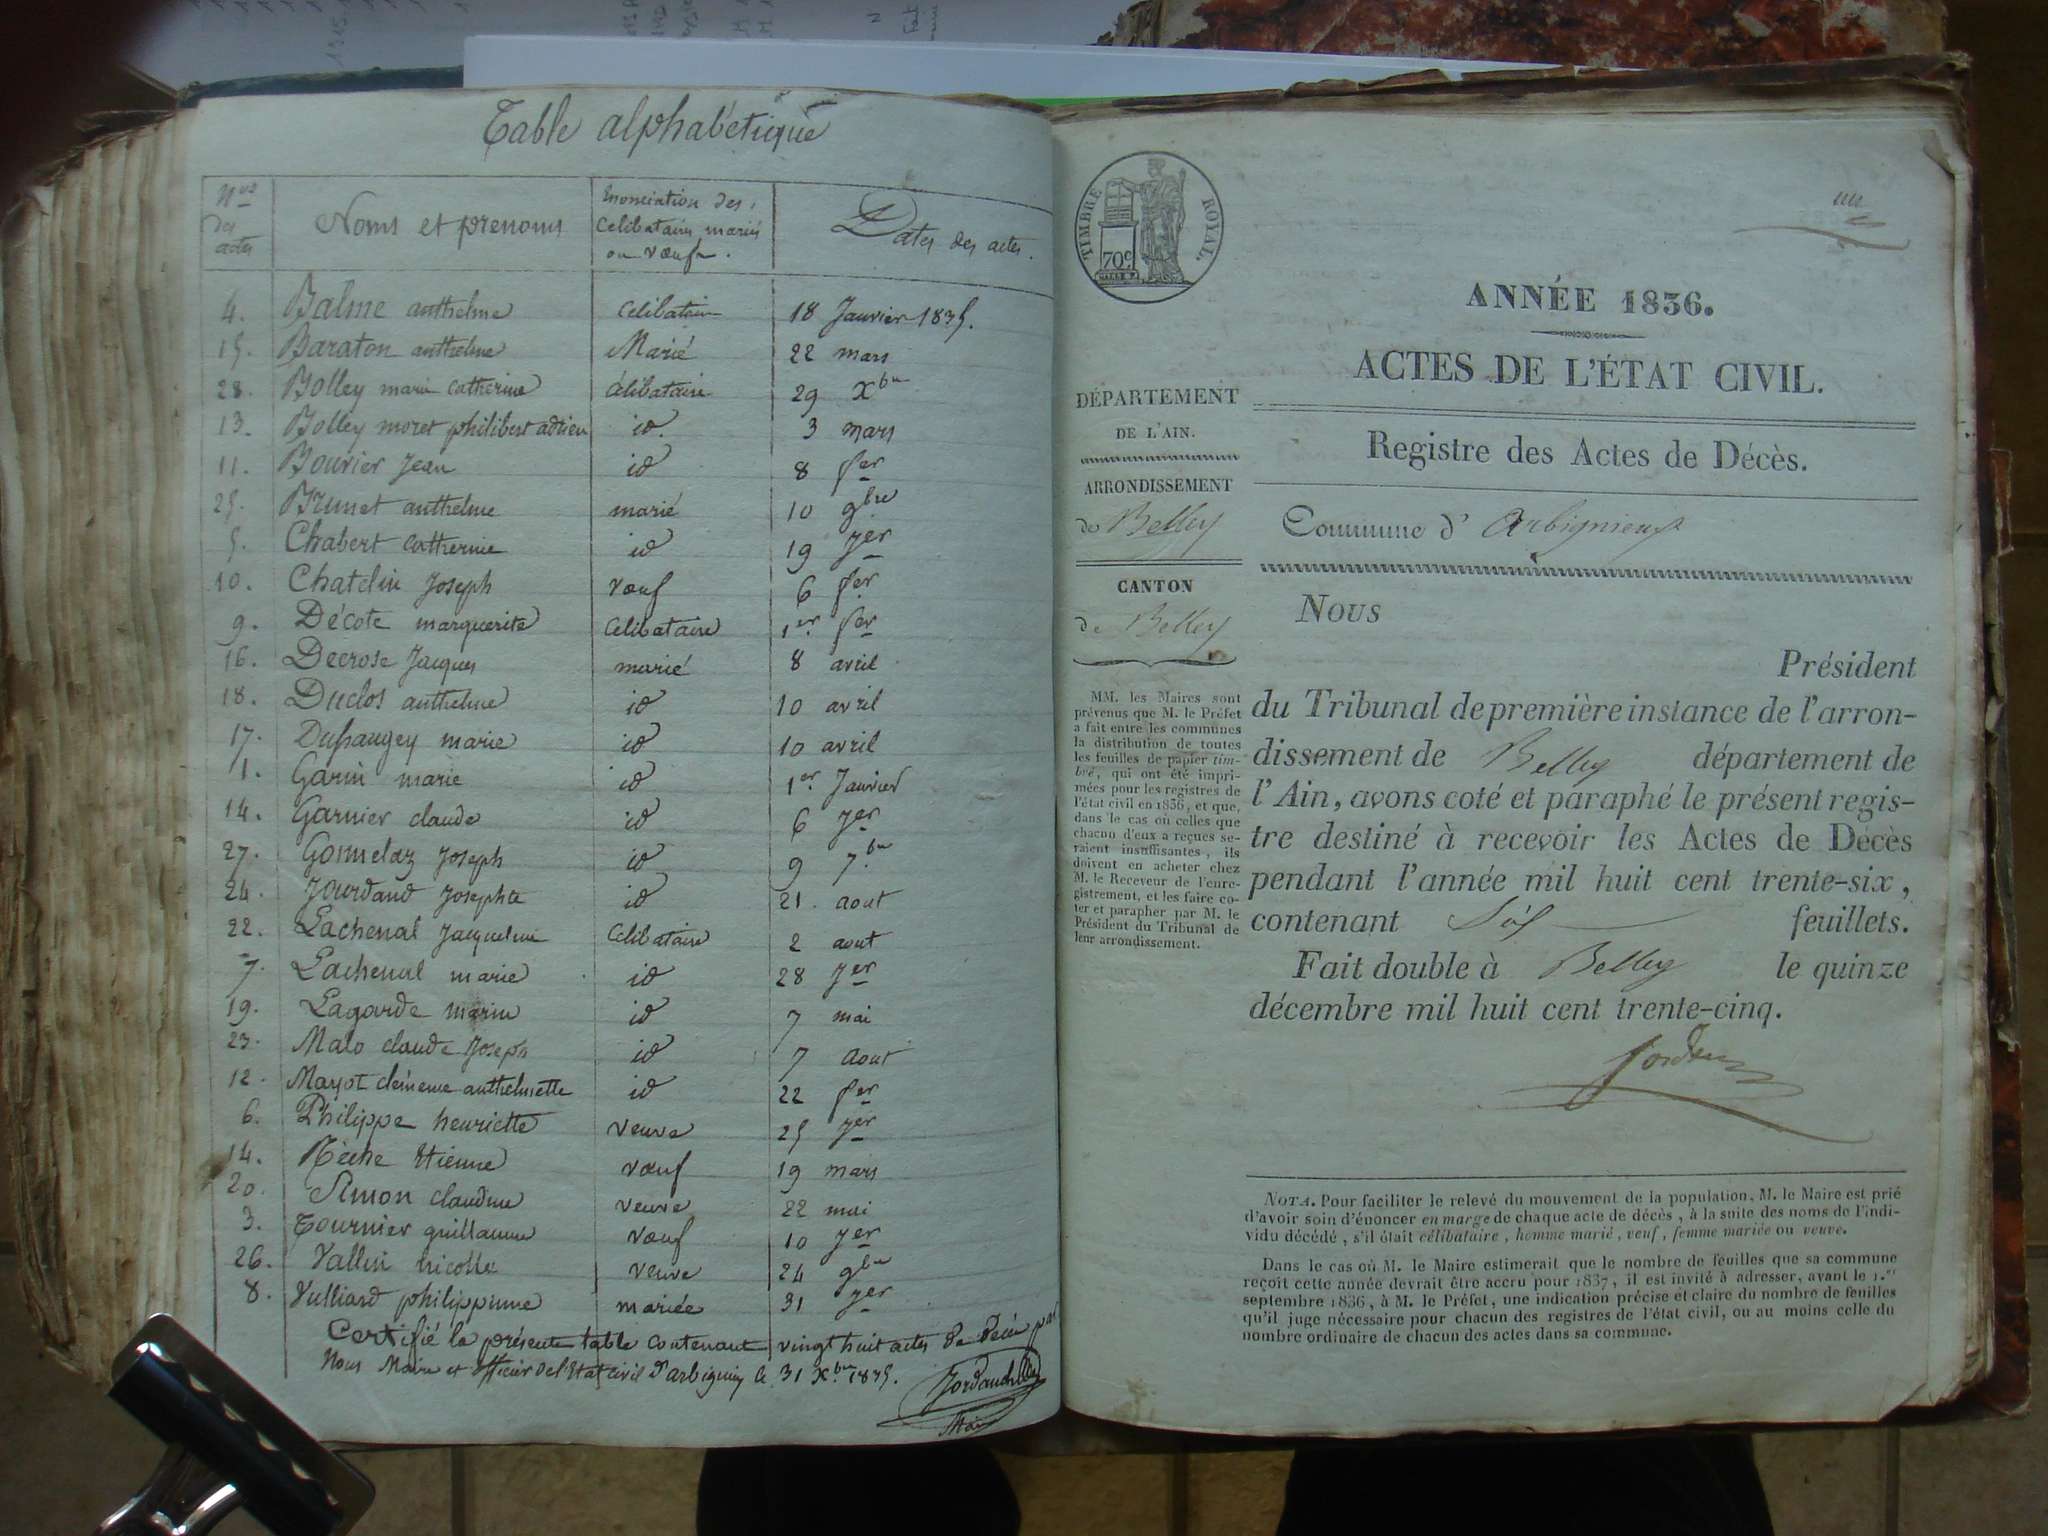 Table alphabétique
Nos des actes
Noms et prenoms
Enonciation des Celibataires mariés ou vœufs.
Dates des actes.
4. Balme anthelme Celibataire 18 Janvier 1835.
15. Baraton anthelme Marié 22 mars
28. Bolley marie catherine célibataire 29 Xbre
13. Bolley moret philibert adrien id. 3 mars
11. Bouvier Jean id 8 fer
25. Brunet anthelme marié 10 9bre
5. Chabert catherine id 19 Jer
10. Chatelin Joseph vœuf 6 fer
9. Décote marguerite Celibataire 1er fer
16. Decrose Jacques marié 8 avril
18. Duclos anthelme id 10 avril
17. Dussaugey marie id 10 avril
1. Garin marie id 1er Janvier
14. Garnier claude id 6 Jer
27. Gonnelaz Joseph id 9 7bre
24. Jourdand Josephte id 21. aout
22. Lachenal Jacqueline Celibataire 2 aout
7. Lachenal marie id 28 Jer
19. Lagarde marin id 7 mai
23. Malo claude Joseph id 7 Aout
12. Mayot clémence anthelmette id 22 fer
6. Philippe henriette veuve 25 Jer
14. Rèche Etienne vœuf 19 mars
20. Simon claudine veuve 22 mai
3. Tournier guillaume vœuf 10 Jer
26. Vallin nicolle veuve 24 9bre
8. Vulliard philippinne mariée 31 Jer
Certifié la présente table contenant vingt huit actes de Décès par
Nous Maire et officier de l'Etat civil d'arbignieu le 31 Xbre 1835.
Maire
TIMBRE ROYAL.
70c
un
ANNÉE 1836.
ACTES DE L'ÉTAT CIVIL.
Registre des Actes de Décès.
Commune d' Arbignieux
DÉPARTEMENT
DE L'AIN.
ARRONDISSEMENT
de Belley
CANTON
de Belley
MM. les Maires sont
prévenus que M. le Préfet
a fait entre les communes
la distribution de toutes
les feuilles de papier tim-
bré, qui ont été impri-
mées pour les registres de
l'état civil en 1836, et que,
dans le cas où celles que
chacun d'eux a reçues se-
raient insuffisantes, ils
doivent en acheter chez
M. le Receveur de l'enre-
gistrement, et les faire co-
ter et parapher par M. le
Président du Tribunal de
leur arrondissement.
Nous
Président
du Tribunal de première instance de l'arron-
dissement de Belley département de
l'Ain, avons coté et paraphé le présent regis-
tre destiné à recevoir les Actes de Décès
pendant l'année mil huit cent trente-six,
contenant feuillets.
Fait double à Belley le quinze
décembre mil huit cent trente-cinq.
NOTA. Pour faciliter le relevé du mouvement de la population, M. le Maire est prié
d'avoir soin d'énoncer en marge de chaque acte de décès, à la suite des noms de l'indi-
vidu décédé, s'il était célibataire, homme marié, veuf, femme mariée ou veuve.
Dans le cas où M. le Maire estimerait que le nombre de feuilles que sa commune
reçoit cette année devrait être accru pour 1837, il est invité à adresser, avant le 1.er
septembre 1836, à M. le Préfet, une indication précise et claire du nombre de feuilles
qu'il juge nécessaire pour chacun des registres de l'état civil, ou au moins celle du
nombre ordinaire de chacun des actes dans sa commune.